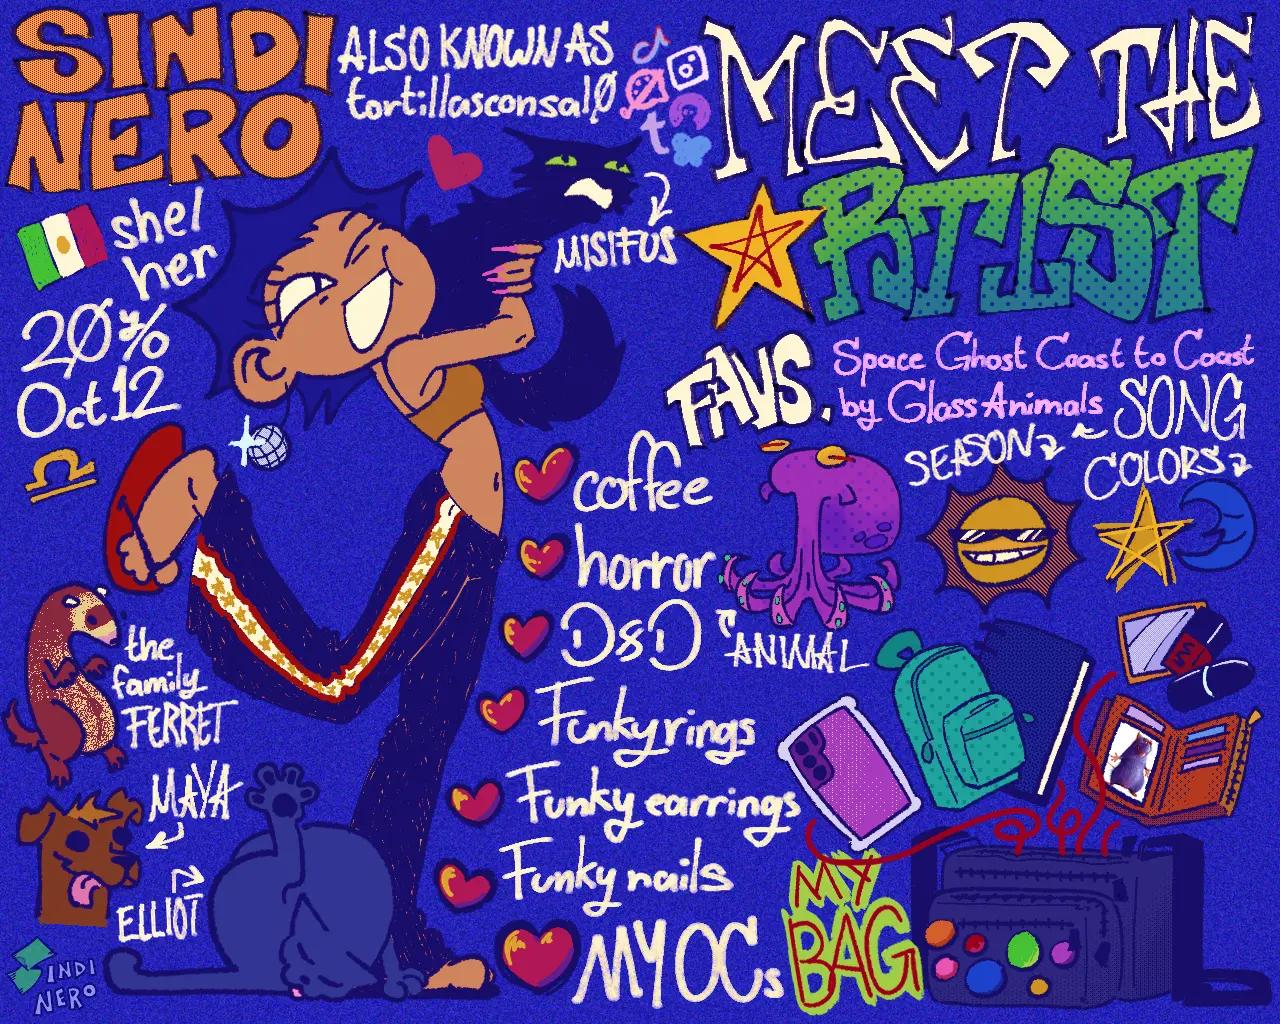 SINDI
NERO
ALSO KNOWN AS
tortillasconsal0
MEET THE
ARTIST
she/
her
20 y/o
Oct 12
MISIFUS
FAVS.
Space Ghost Coast to Coast
by Glass Animals
SONG
SEASON
COLORS
coffee
horror
D&D
ANIMAL
Funky rings
Funky earrings
Funky nails
MY OCs
the
family
FERRET
MAYA
ELLIOT
MY
BAG
SINDI
NERO